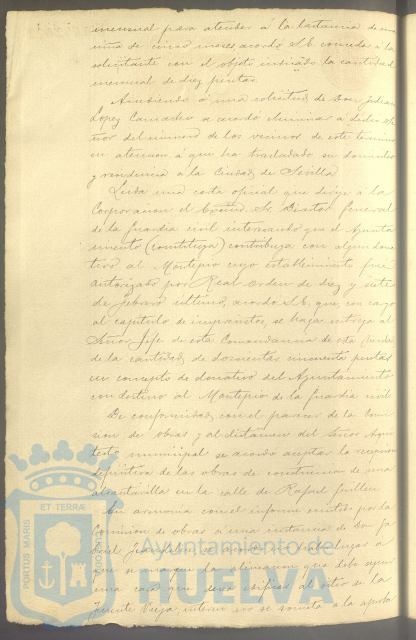 mensual para atender á la lactancia de una
niña de cinco meses, acordó S.E. conceder á la
solicitante con el objeto indicado la cantidad
mensual de diez pesetas.
Accediendo á una solicitud de Don Julian
Lopez Camacho se acordó eliminar á dicho Se-
ñor del número de los vecinos de este termino
en atencion á que ha trasladado su domicilio
y residencia á la Ciudad de Sevilla
Leida una carta oficial que dirige á la
Corporacion el Excmo. Sr. Director General
de la Guardia civil interesando que el Ayunta
miento (constituya) contribuya con algun dona
tivo al Montepio cuyo establecimiento fué
autorizado por Real orden de diez y siete
de febrero último, acordó S.E. que, con cargo
al capitulo de imprevistos, se haga entrega al
Señor Jefe de esta Comandancia de esta
de la cantidad de doscientas cincuenta pesetas
en concepto de donativo del Ayuntamiento
con destino al Montepio de la Guardia civil
De conformidad con el parecer de la Comi
sion de obras y al dictamen del Señor Arqui
tecto municipal se acordó aceptar la recepcion
definitiva de las obras de construccion de una
alcantarilla en la calle de Rafael Guillen
En armonia con el informe emitido por la
Comision de obras á una instancia de Don
se acordó
que se marque la alineacion que debe seguir
una casa que desea edificar al sitio de la
Fuente Vieja, interin no se someta á la aproba
PORTUS MARIS ET TERRÆ CUSTODIA
Ayuntamiento de
HUELVA